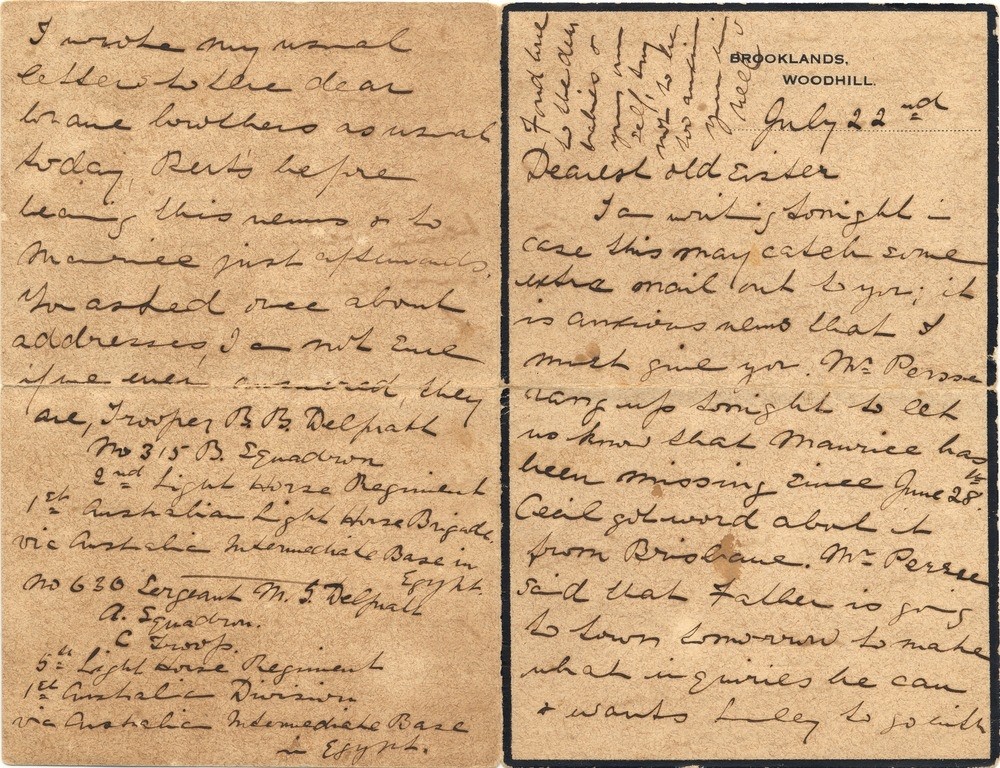 I wrote my usual
letters to the dear
brothers as usual
today, Bert's before
hearing this news & to
Maurice just afterwards.
You asked once about
addresses, I am not sure
if we ever answered, they
are, Trooper B. B. Delpratt
No 315 B. Squadron
2nd Light Horse Regiment
1st Australian Light Horse Brigade
via Australia Intermediate Base in
Egypt.
No 630 Sergeant M. G. Delpratt
A. Squadron.
C Troop.
5th Light Horse Regiment
1st Australia Division
via Australia Intermediate Base
in Egypt.
BROOKLANDS,
WOODHILL.
July 22nd
Dearest old sister
I am writing tonight in
case this may catch some
extra mail out to you; it
is anxious news that I
must give you. Mr Persse
rang up tonight to let
us know that Maurice has
been missing since June 28th.
Cecil got word about it
from Brisbane. Mr Persse
said that Father is going
to town tomorrow to make
what inquiries he can
& wants to go with
Fond love
to the dear
babies &
your own
self, try
not to be
too anxious
Nell